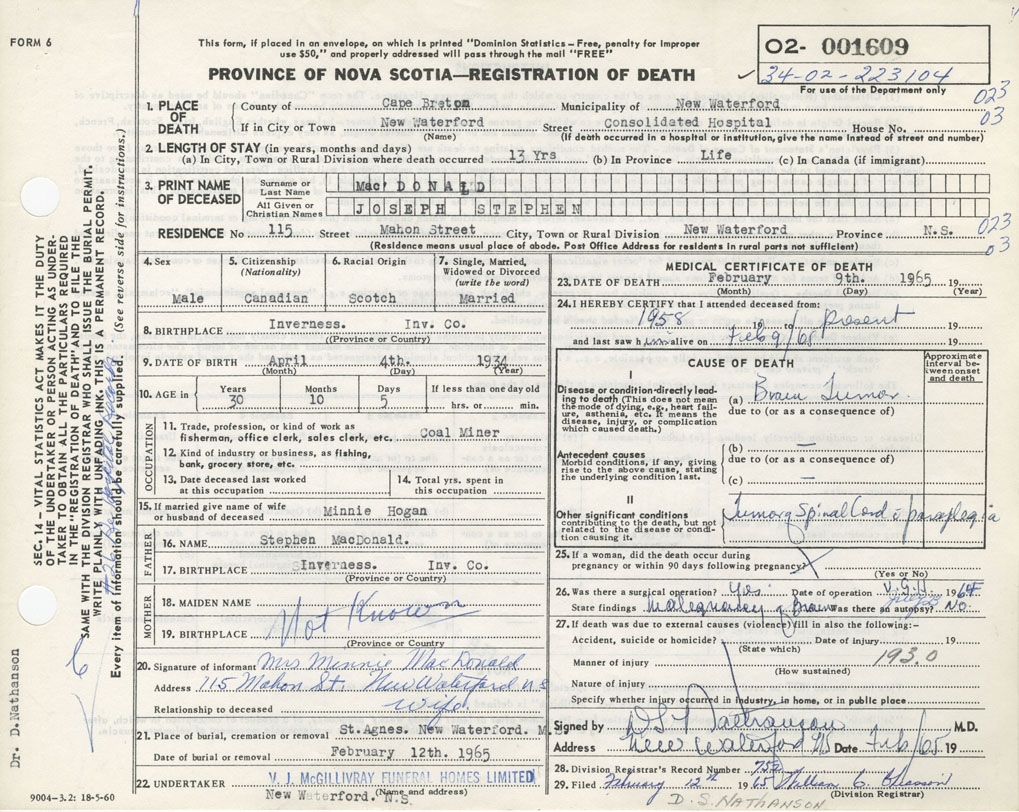 FORM 6
This form, if placed in an envelope, on which is printed "Dominion Statistics–Free, penalty for improper
use $50," and properly addressed will pass through the mail "FREE"
PROVINCE OF NOVA SCOTIA—REGISTRATION OF DEATH
02- 001609
34-02-223104
For use of the Department only
023
03
1. PLACE OF DEATH
County of Cape Breton Municipality of New Waterford
If in City or Town New Waterford Street Consolidated Hospital House No.
(Name) (If death occurred in a hospital or institution, give the name instead of street and number)
2. LENGTH OF STAY (in years, months and days)
(a) In City, Town or Rural Division where death occurred 13 Yrs (b) In Province Life (c) In Canada (if immigrant)
3. PRINT NAME OF DECEASED
Surname or Last Name Mac'DONALD
All Given or Christian Names JOSEPH STEPHEN
RESIDENCE No 115 Street Mahon Street City, Town or Rural Division New Waterford Province N.S.
(Residence means usual place of abode. Post Office Address for residents in rural parts not sufficient)
023
03
4. Sex
Male
5. Citizenship (Nationality)
Canadian
6. Racial Origin
Scotch
7. Single, Married, Widowed or Divorced (write the word)
Married
8. BIRTHPLACE Inverness. Inv. Co.
(Province or Country)
9. DATE OF BIRTH April 4th. 1934
(Month) (Day) (Year)
10. AGE in
Years Months Days If less than one day old
30 10 5 hrs. or min.
OCCUPATION
11. Trade, profession, or kind of work as
fisherman, office clerk, sales clerk, etc. Coal Miner
12. Kind of industry or business, as fishing,
bank, grocery store, etc.
13. Date deceased last worked at this occupation
14. Total yrs. spent in this occupation
15. If married give name of wife
or husband of deceased Minnie Hogan
FATHER
16. NAME Stephen MacDonald.
17. BIRTHPLACE Inverness. Inv. Co.
(Province or Country)
MOTHER
18. MAIDEN NAME
19. BIRTHPLACE Not Known
(Province or Country)
20. Signature of informant Mrs Minnie MacDonald
Address 115 Mahon St. New Waterford N.S
Relationship to deceased wife
21. Place of burial, cremation or removal St.Agnes. New Waterford.
Date of burial or removal February 12th. 1965
22. UNDERTAKER V. J. McGILLIVRAY FUNERAL HOMES LIMITED
New Waterford. N.S.
(Name and address)
MEDICAL CERTIFICATE OF DEATH
23. DATE OF DEATH February 9th. 1965 19
(Month) (Day) (Year)
24. I HEREBY CERTIFY that I attended deceased from:
1958 19 to present 19
and last saw him alive on Feb 9/65 19
CAUSE OF DEATH
Approximate interval between onset and death
I
Disease or condition directly leading to death (This does not mean the mode of dying, e.g., heart failure, asthenia, etc. It means the disease, injury, or complication which caused death.)
(a) Brain Tumor.
due to (or as a consequence of)
Antecedent causes
Morbid conditions, if any, giving rise to the above cause, stating the underlying condition last.
(b) —
due to (or as a consequence of)
(c) —
II
Other significant conditions contributing to the death, but not related to the disease or condition causing it.
Tumor of Spinal Cord c̄ paraplegia
25. If a woman, did the death occur during
pregnancy or within 90 days following pregnancy?
(Yes or No)
26. Was there a surgical operation? Yes Date of operation V.G.H 1964
State findings Malignancy of Brain Was there an autopsy? No
27. If death was due to external causes (violence) fill in also the following:-
Accident, suicide or homicide? Date of injury 19
(State which)
Manner of injury 193.0
(How sustained)
Nature of injury
Specify whether injury occurred in industry, in home, or in public place
Signed by D S Nathanson M.D.
Address New Waterford NS Date Feb/65 19
28. Division Registrar's Record Number 752
29. Filed February 12th 1965
(Division Registrar)
D. S. NATHANSON
SEC. 14—VITAL STATISTICS ACT MAKES IT THE DUTY
OF THE UNDERTAKER OR PERSON ACTING AS UNDERTAKER TO OBTAIN ALL THE PARTICULARS REQUIRED
IN THE "REGISTRATION OF DEATH" AND TO FILE THE
SAME WITH THE DIVISION REGISTRAR WHO SHALL ISSUE THE BURIAL PERMIT.
WRITE PLAINLY WITH UNFADING INK—THIS IS A PERMANENT RECORD.
Every item of information should be carefully supplied. (See reverse side for instructions.)
Dr. D.Nathanson
9004-3.2: 18-5-60